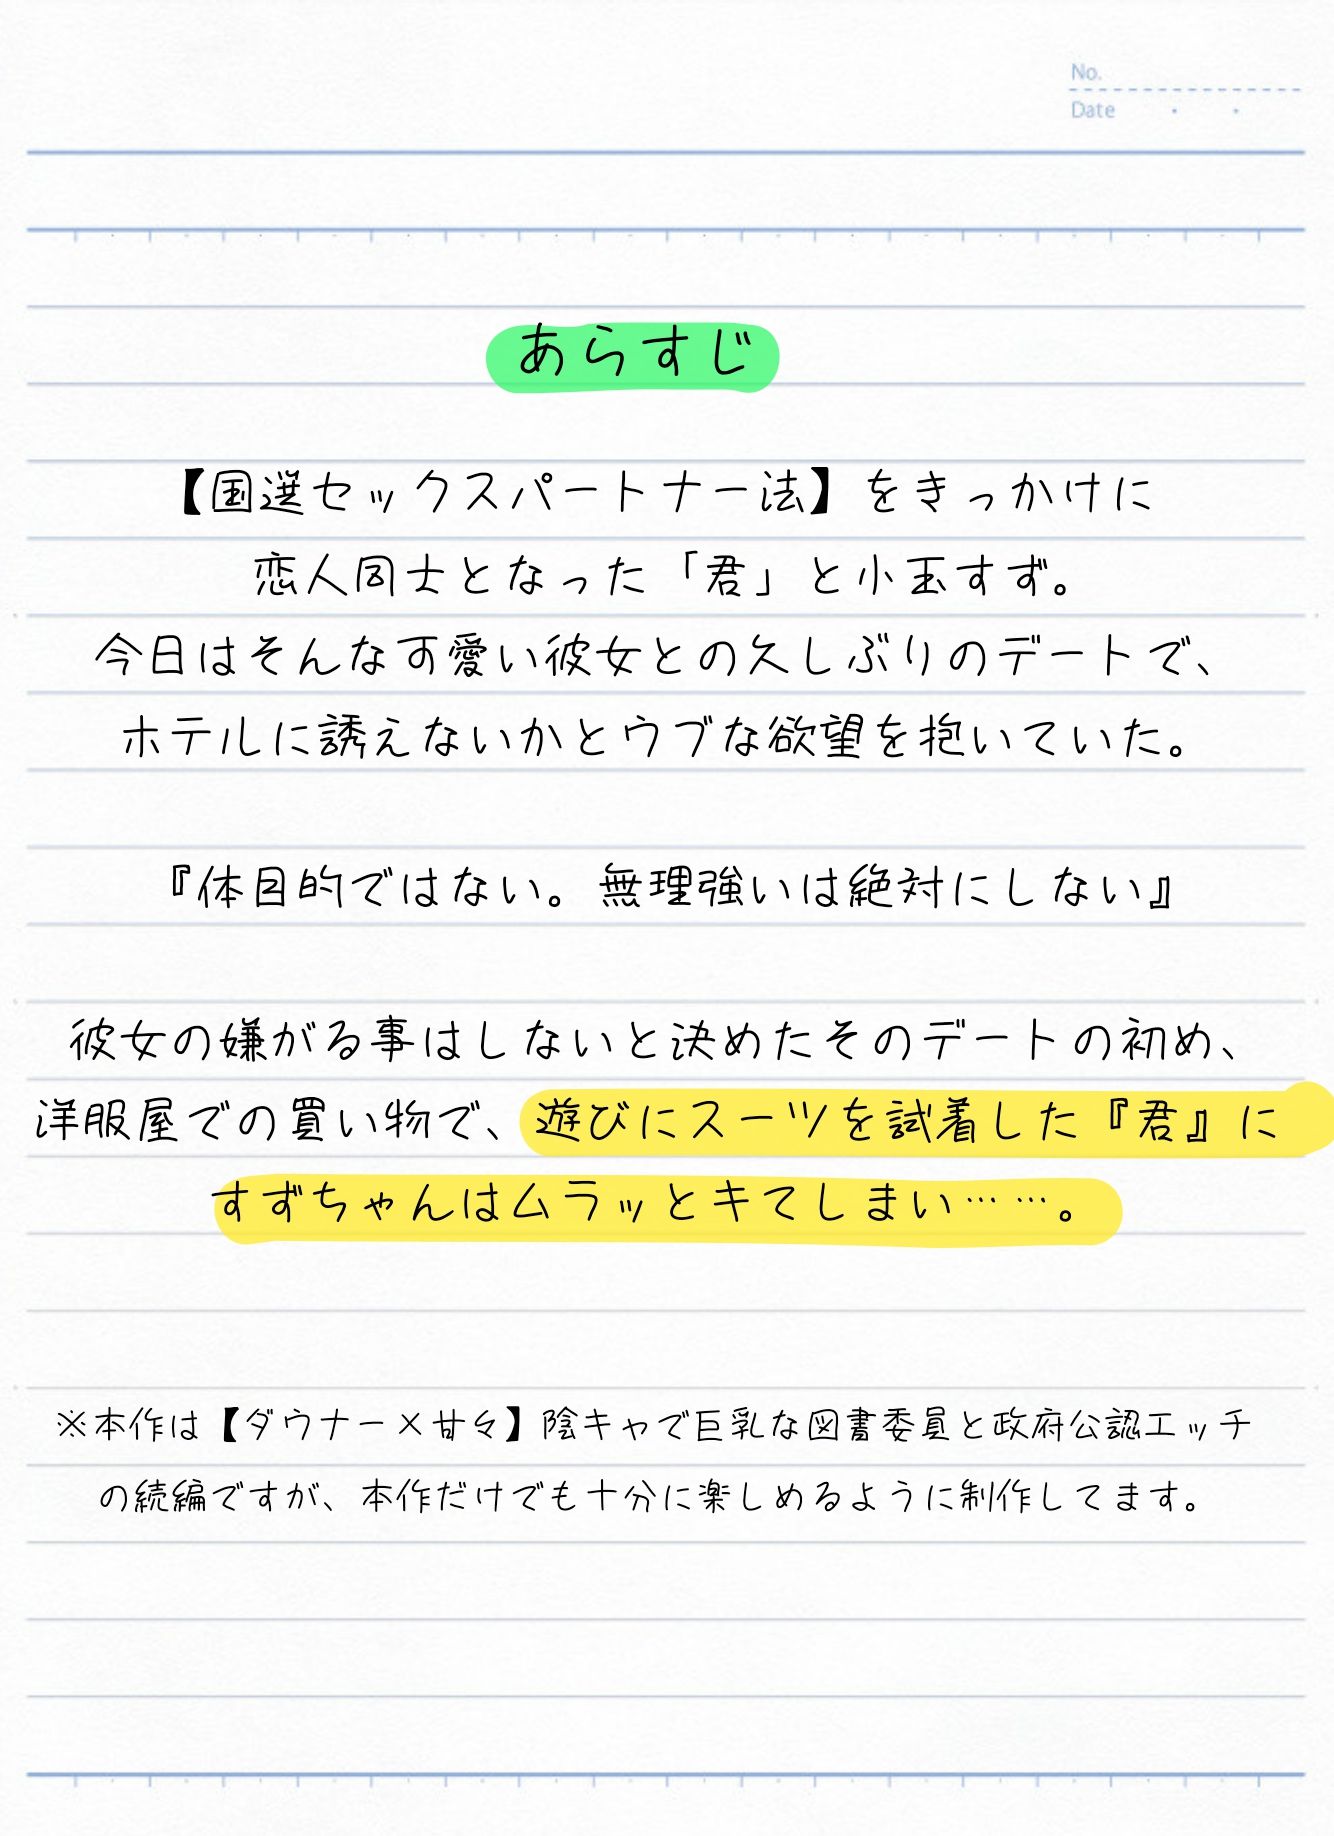 No.
Date
あらすじ
【国選セックスパートナー法】をきっかけに
恋人同士となった「君」と小玉すず。
今日はそんな可愛い彼女との久しぶりのデートで、
ホテルに誘えないかとウブな欲望を抱いていた。
『体目的ではない。無理強いは絶対にしない』
彼女の嫌がる事はしないと決めたそのデートの初め、
洋服屋での買い物で、遊びにスーツを試着した『君』に
すずちゃんはムラッとキてしまい……。
※本作は【ダウナー×甘々】陰キャで巨乳な図書委員と政府公認エッチ
の続編ですが、本作だけでも十分に楽しめるように制作してます。